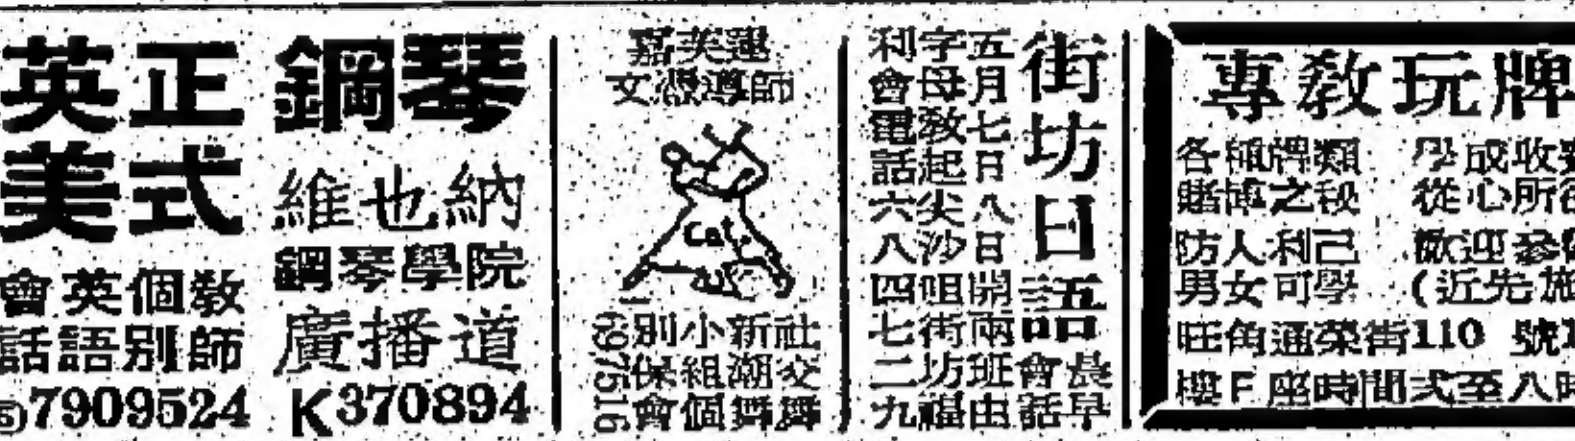 正式
英美
教師
個別
英語
會話
7909524
鋼琴
維也納
鋼琴學院
廣播道
K370894
嘉芙蓮
文憑導師
Cat
社交舞
新潮舞
小組個
別保會
697516
街坊日語
晨早
會話
五月七日八日開兩班由
字母教起尖沙咀街坊福
利會電話六八四七二九
專教玩牌
各種牌類 學成收費
賭博之秘 從心所欲
防人利己 歡迎參
男女可學 (近先施
旺角通菜街110 號
樓F座時間弍至八時